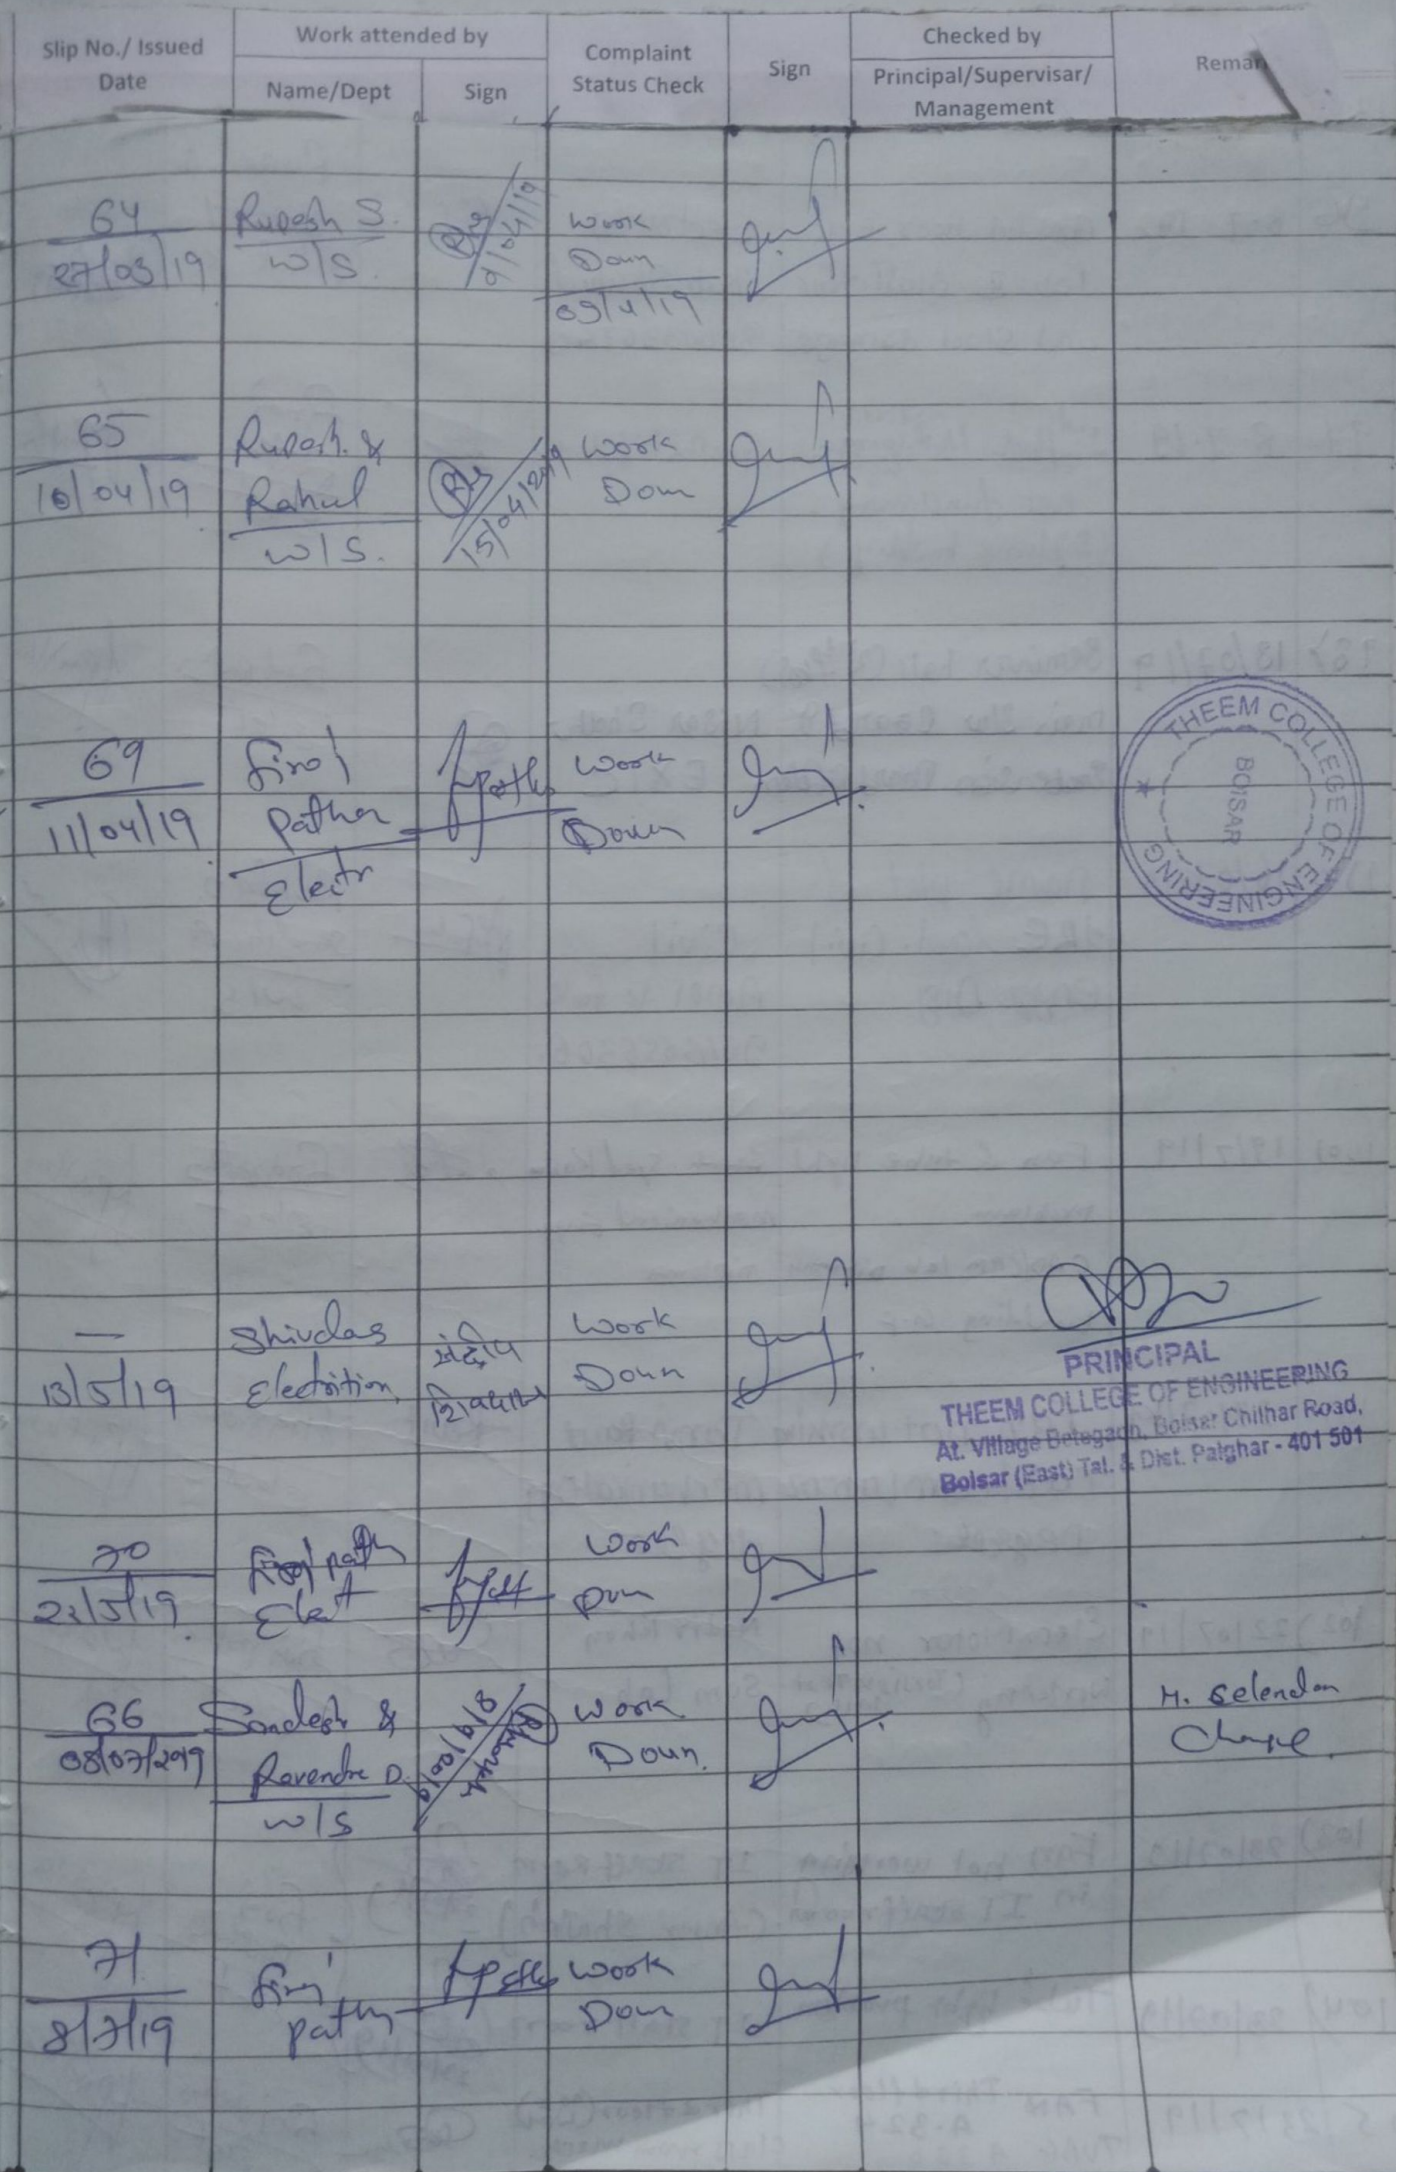 Slip No./ Issued Date
Work attended by
Name/Dept
Sign
Complaint Status Check
Sign
Checked by
Principal/Supervisar/
Management
Remar
64
27/03/19
Rupesh S.
W/S.
9/04/19
Work
Doun
09/4/19
65
10/04/19
Rupesh. &
Rahul
W/S.
15/04/2019
Work
Doun
69
11/04/19
Firoj
Pathan
Electr
Work
Doun
THEEM COLLEGE OF ENGINEERING
BOISAR
—
13/5/19
Shivdas
Electrition
संदीप
शिवदास
Work
Doun
PRINCIPAL
THEEM COLLEGE OF ENGINEERING
At. Village Betegaon, Boisar Chilhar Road,
Boisar (East) Tal. & Dist. Palghar - 401 501
70
22/5/19
Firoj path
Elect
Work
Doun
66
08/07/2019
Sandesh &
Ravendra D.
W/S
Work
Doun.
M. Selendar
Change
71
8/7/19
Firoj
path
Work
Doun